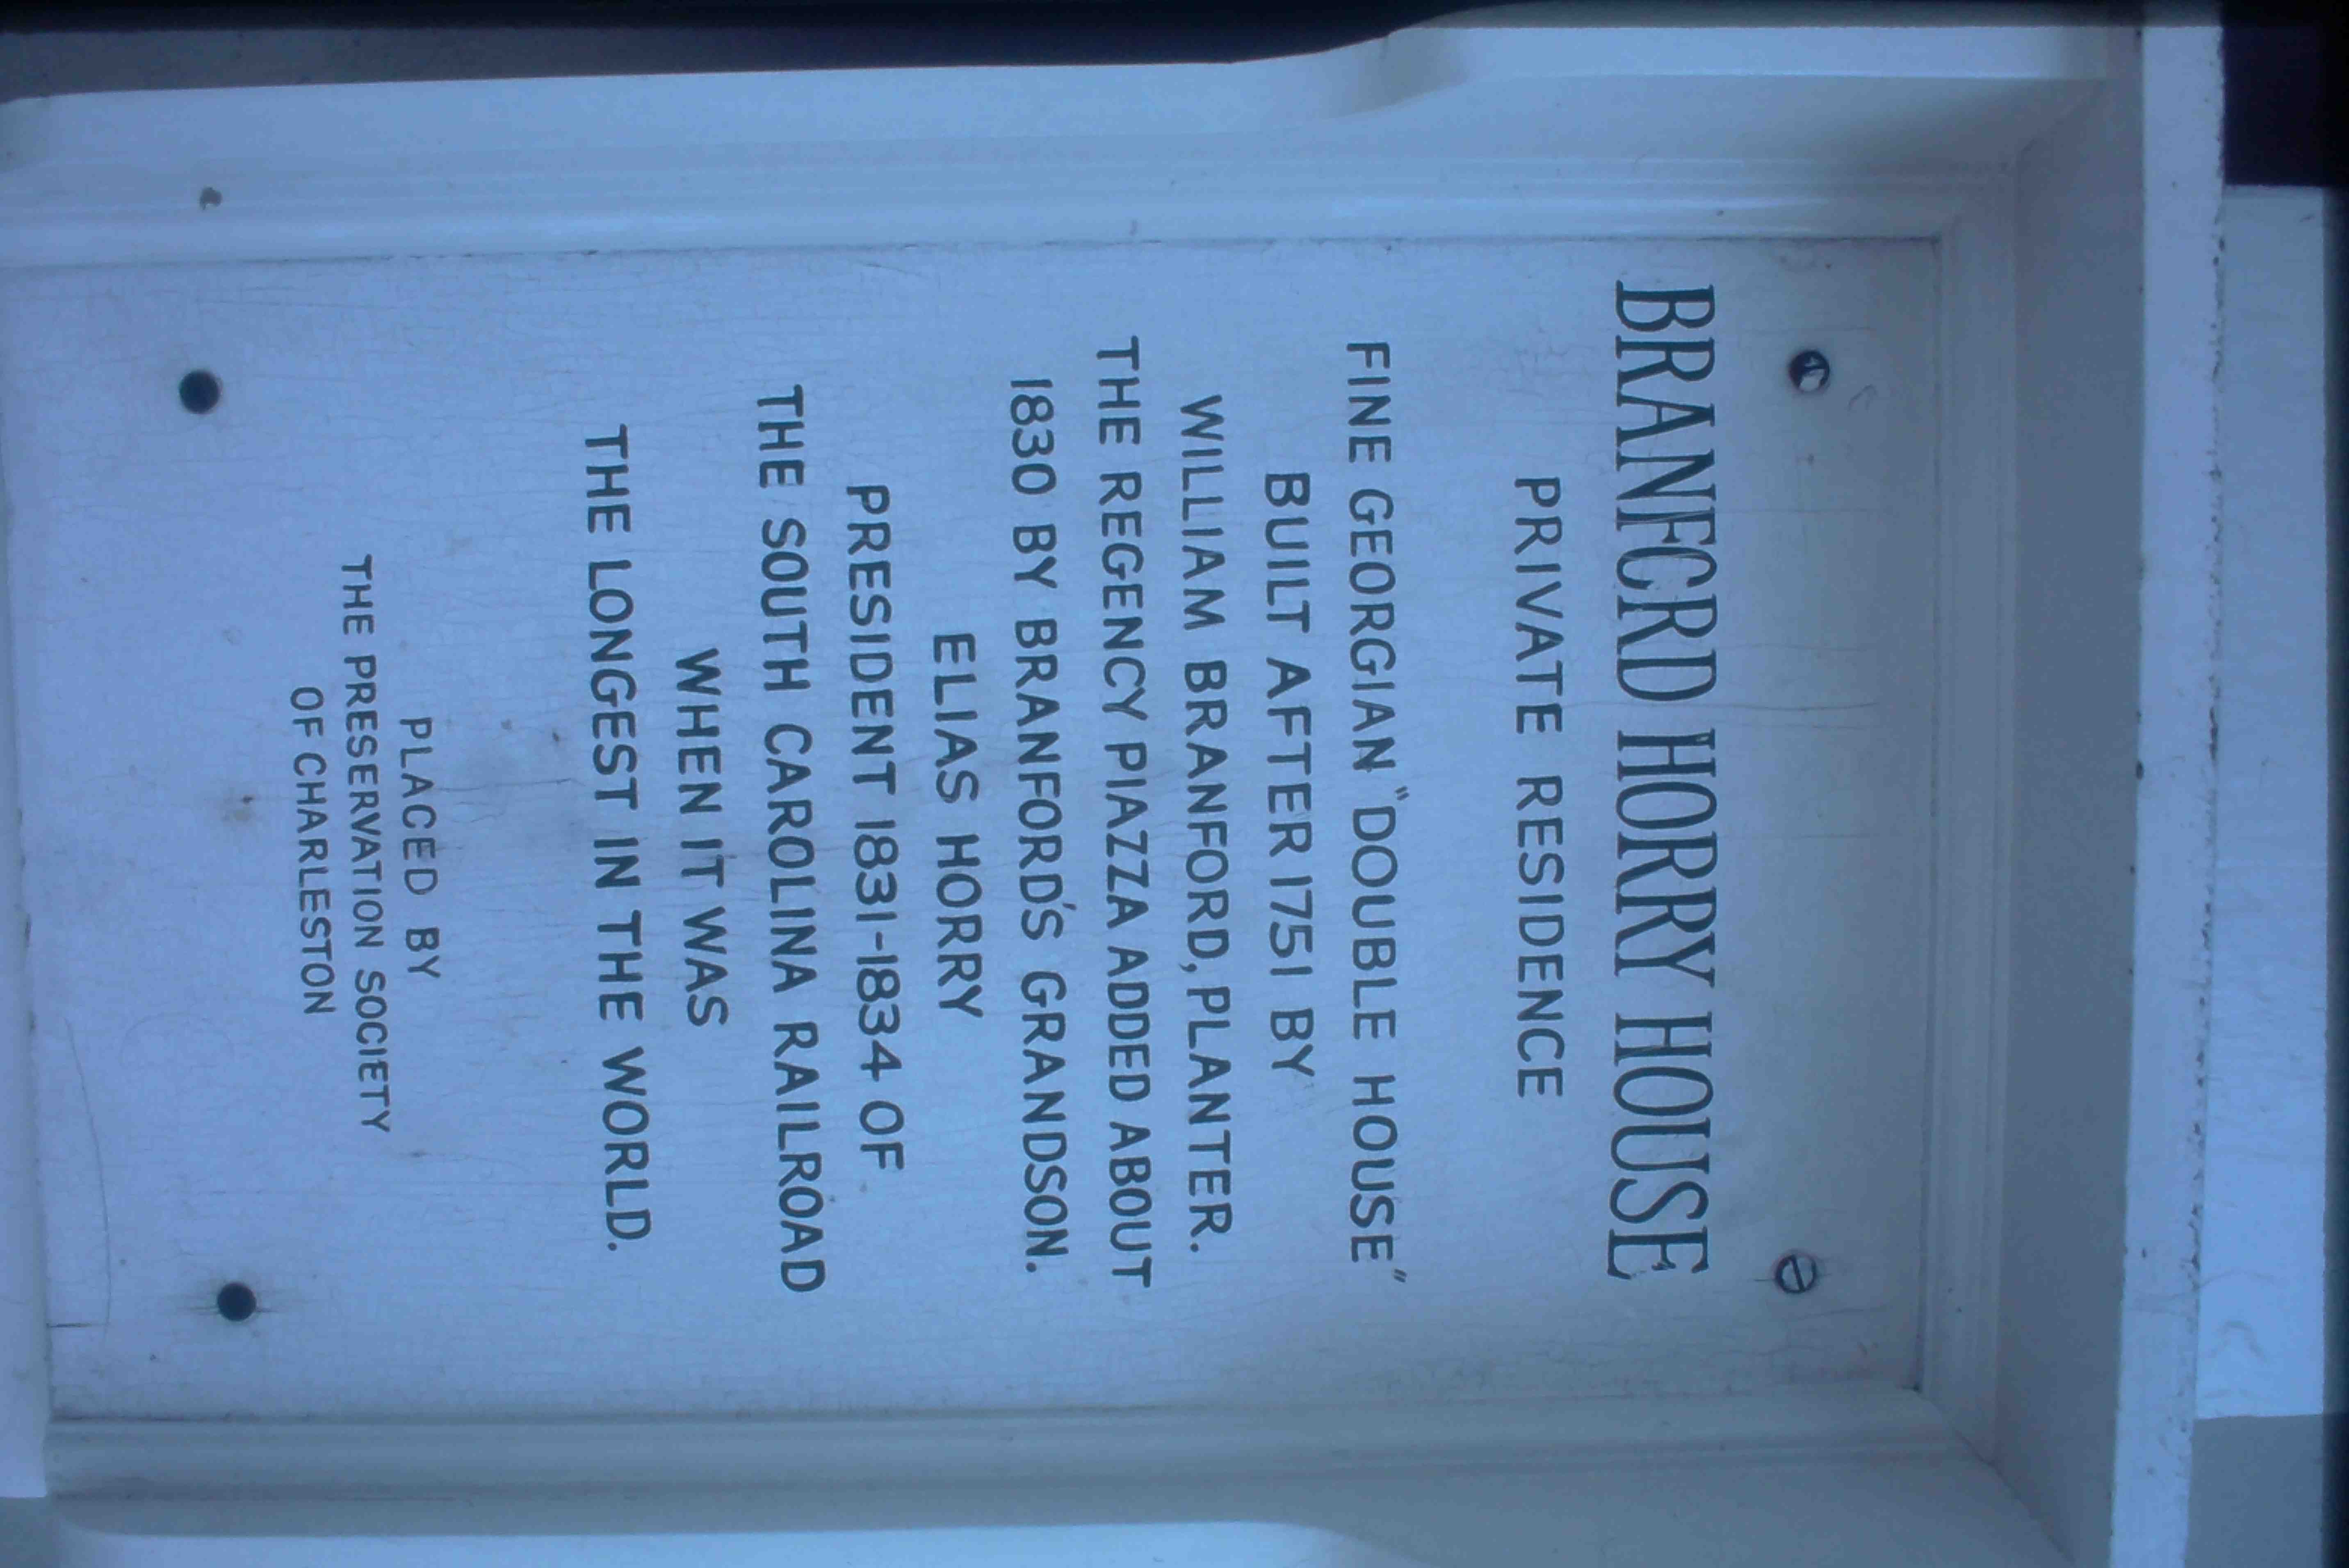 BRANFORD HORRY HOUSE
PRIVATE RESIDENCE
FINE GEORGIAN "DOUBLE HOUSE"
BUILT AFTER 1751 BY
WILLIAM BRANFORD, PLANTER.
THE REGENCY PIAZZA ADDED ABOUT
1830 BY BRANFORD'S GRANDSON.
ELIAS HORRY
PRESIDENT 1831-1834 OF
THE SOUTH CAROLINA RAILROAD
WHEN IT WAS
THE LONGEST IN THE WORLD.
PLACED BY
THE PRESERVATION SOCIETY
OF CHARLESTON